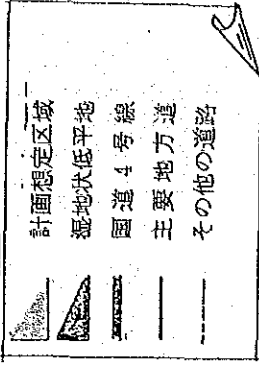 計画想定区域
湿地状低平地
国道4号線
主要地方道
その他の道路